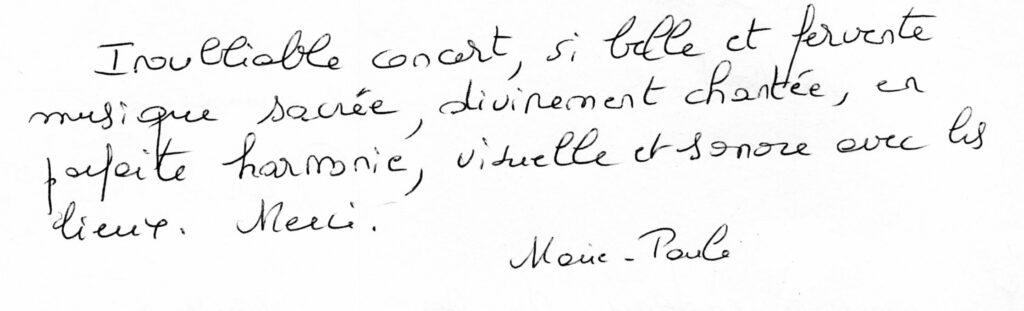 Inoubliable concert, si belle et fervente
musique sacrée, divinement chantée, en
parfaite harmonie, visuelle et sonore avec les
lieux. Merci.
Marie-Paule